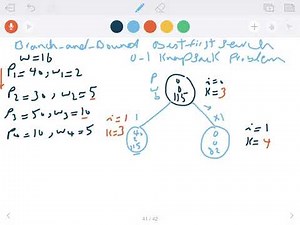 Branch-and-Bound Best-first search
W=16
0-1 Knapsack Problem
P1=40, w1=2
P2=30, w2=5
P3=50, w3=10
P4=10, w4=5
P
w
b
0
0
115
i=0
K=3
i=1
K=3
1
40
2
115
X1
0
0
82
i=1
K=4
41 / 42